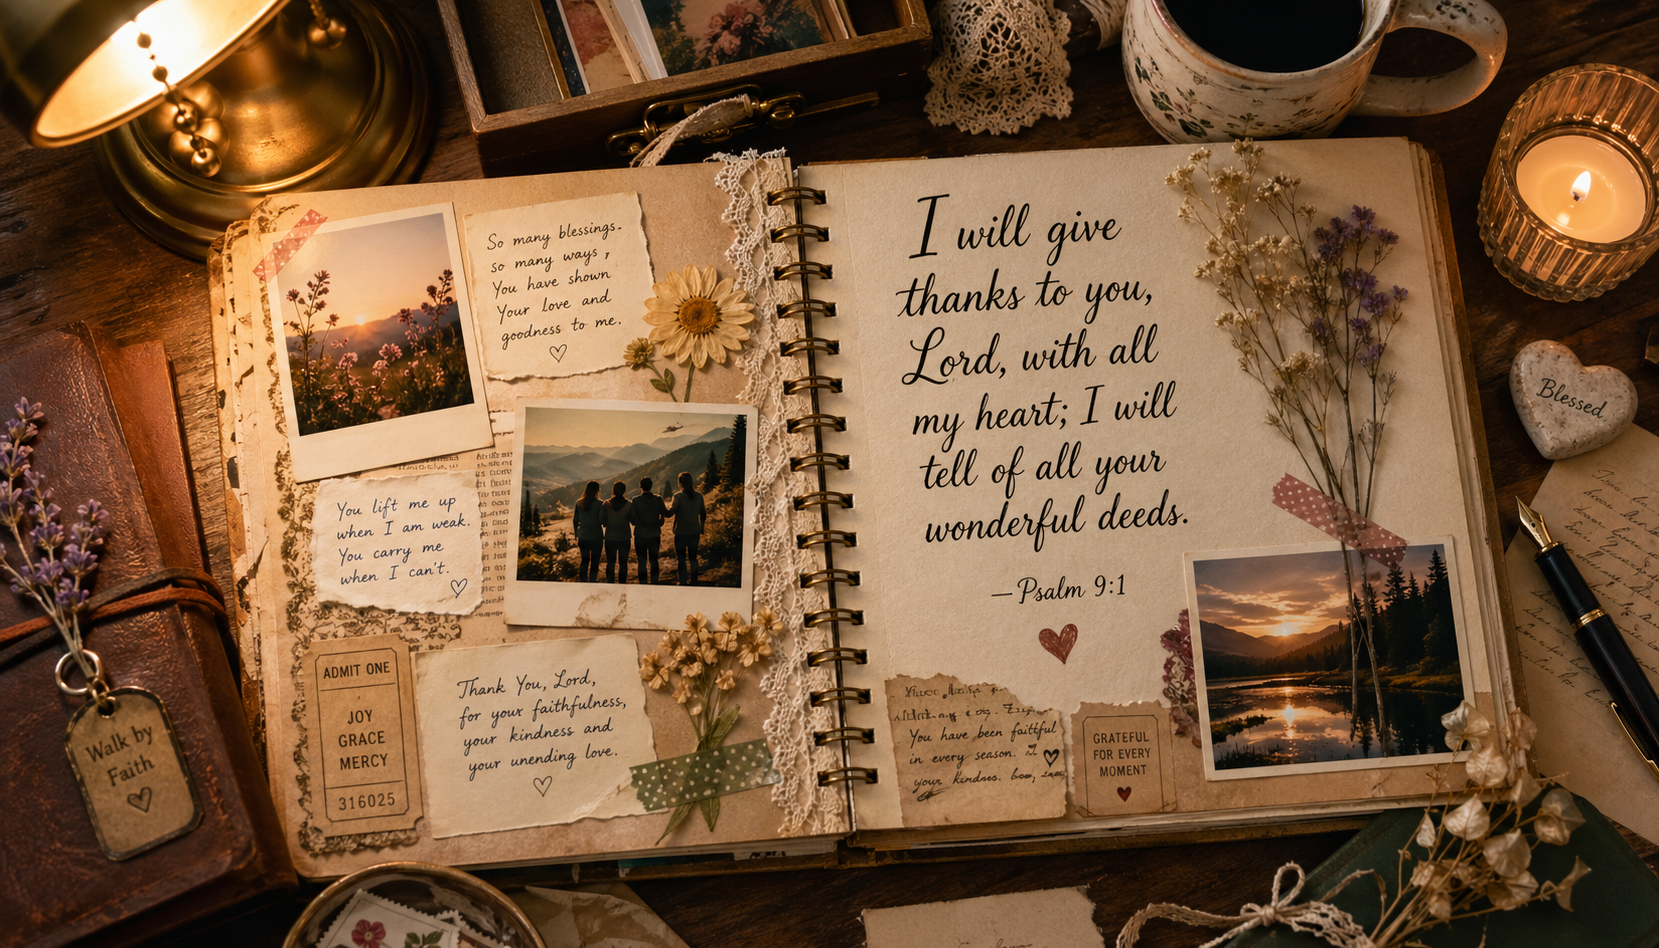 So many blessings.
so many ways,
You have shown
Your love and
goodness to me.
You lift me up
when I am weak.
You carry me
when I can't.
ADMIT ONE
JOY
GRACE
MERCY
316025
Thank You, Lord,
for your faithfulness,
your kindness and
your unending love.
Walk by
Faith
I will give
thanks to you,
Lord, with all
my heart; I will
tell of all your
wonderful deeds.
—Psalm 9:1
You have been faithful
in every season.
your kindness
GRATEFUL
FOR EVERY
MOMENT
Blessed